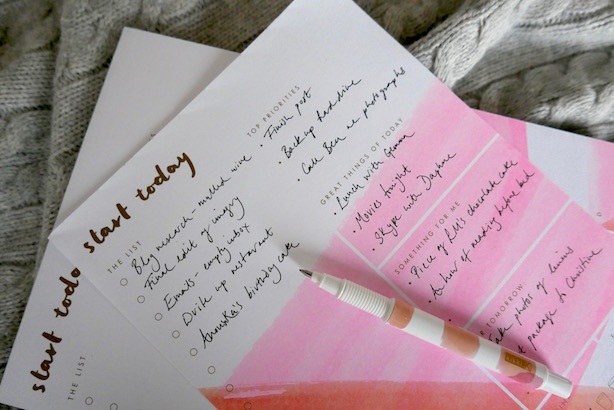 start today
THE LIST
Blog research - mulled wine
Final edit of imagery
Emails - empty inbox
Write up restaurant
Anouska's birthday cake
TOP PRIORITIES
• Finish post
• Back up hard drive
• Call Ben re photographs
GREAT THINGS OF TODAY
• Lunch with Gemma
• Movies tonight
• Skype with Daphne
SOMETHING FOR ME
• Piece of Lili's chocolate cake
• A hour of reading before bed
TOMORROW
Take photos of linens
package to Christine
start today
THE LIST